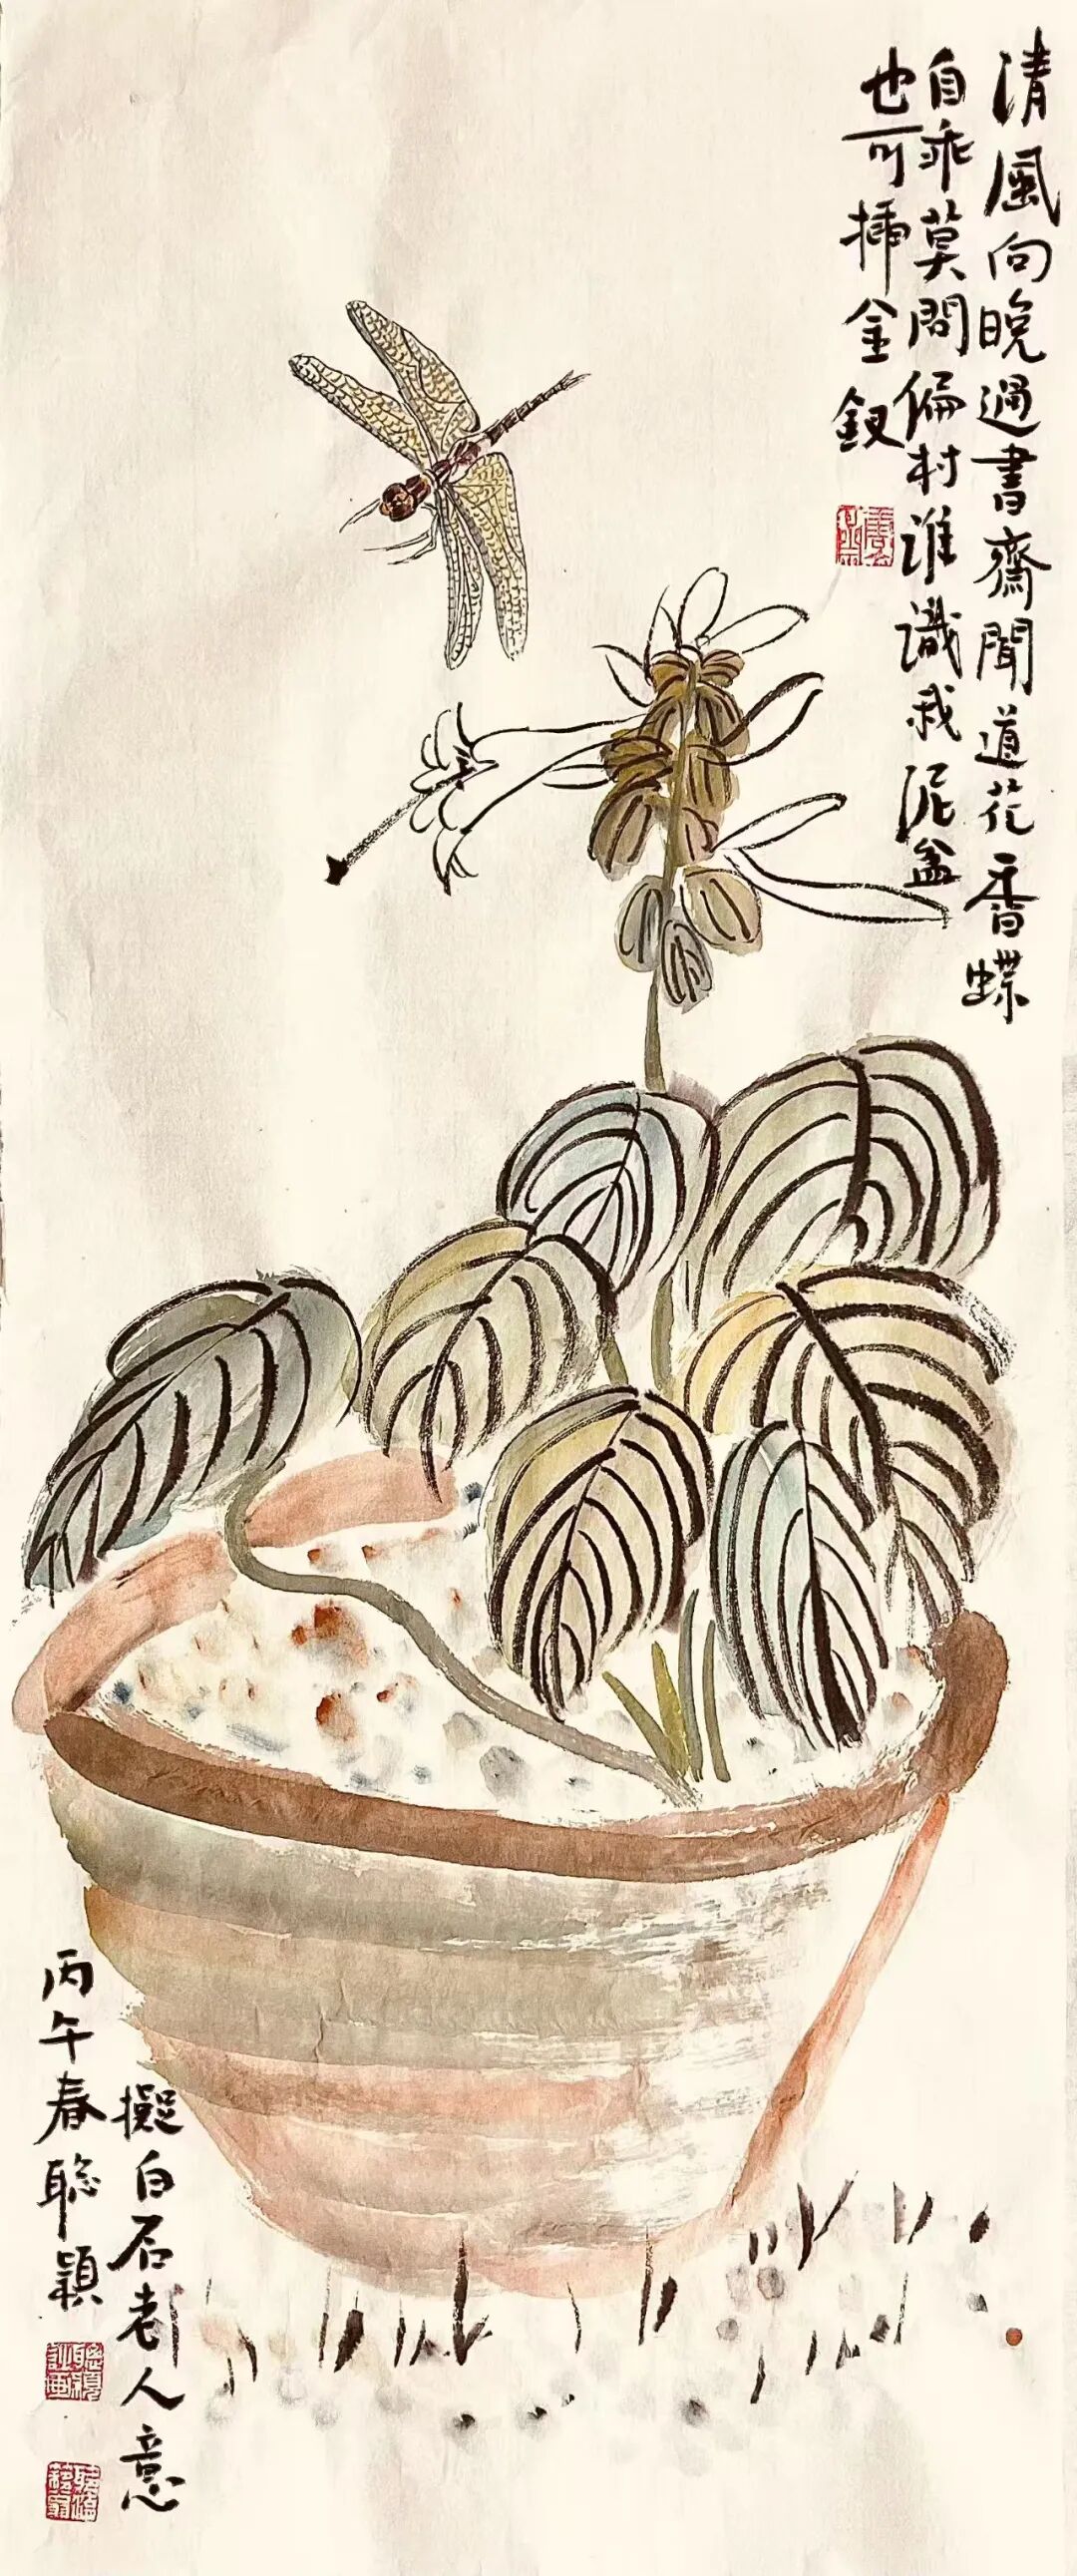 清風向晚過書齋聞道花香蝶
自乖莫問偏村誰識我泥盆
也可插金釵
擬白石老人意
丙午春聰穎